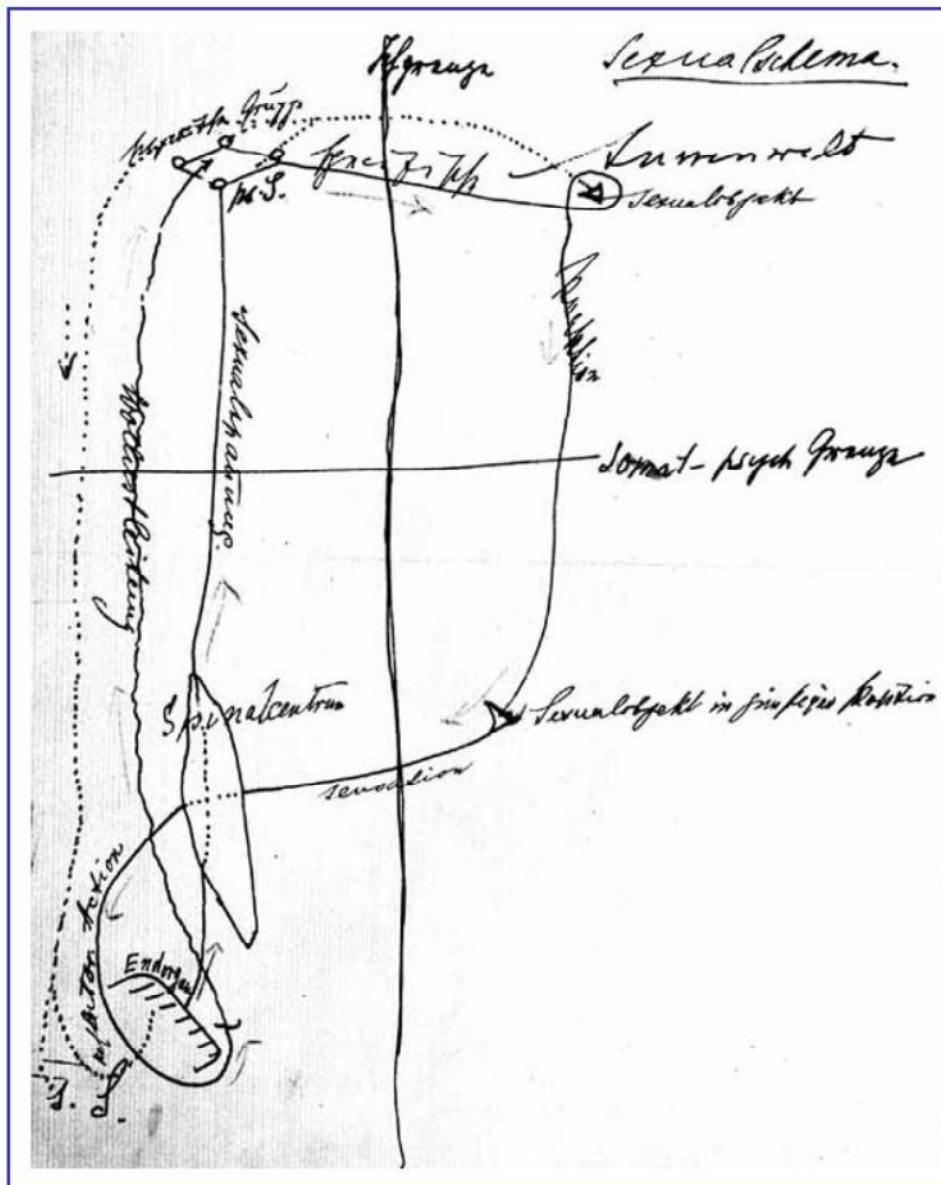 Ichgrenze
Sexualschema.
psych. Gruppe
ps. S.
Aussenwelt
Sexualobjekt
Reaktion
Sexualspannung.
Wollustleitung
Somat-psych Grenze
Spinalcentrum
Sexualobjekt in günstiger Position
sensation
reflector. Action
Endorgan